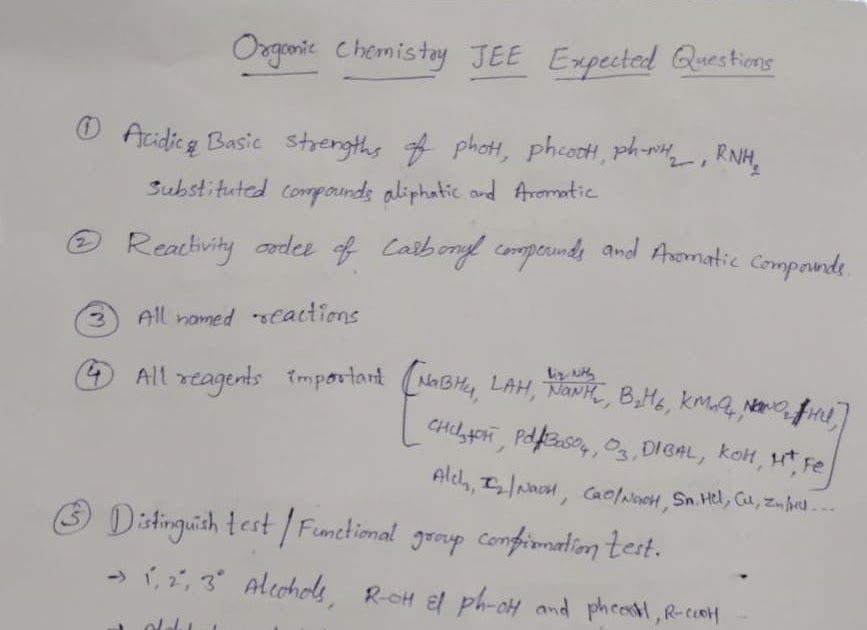 Organic Chemistry JEE Expected Questions
① Acidic & Basic strengths of phoH, phcooH, ph-NH₂, RNH₂
substituted compounds aliphatic and Aromatic
② Reactivity order of Carbonyl compounds and Aromatic Compounds.
③ All named reactions
④ All reagents important [NaBH₄, LAH, liq NH₃/NaNH₂, B₂H₆, KMnO₄, NaNO₂/HCl,
CHCl₃+OH⁻, Pd/BaSO₄, O₃, DIBAL, KOH, H⁺, Fe]
AlCl₃, I₂/NaOH, CaO/NaOH, Sn.HCl, Cu, Zn/HCl...
⑤ Distinguish test / Functional group confirmation test.
→ 1°, 2°, 3° Alcohols, R-OH & ph-OH and phcooH, R-cooH